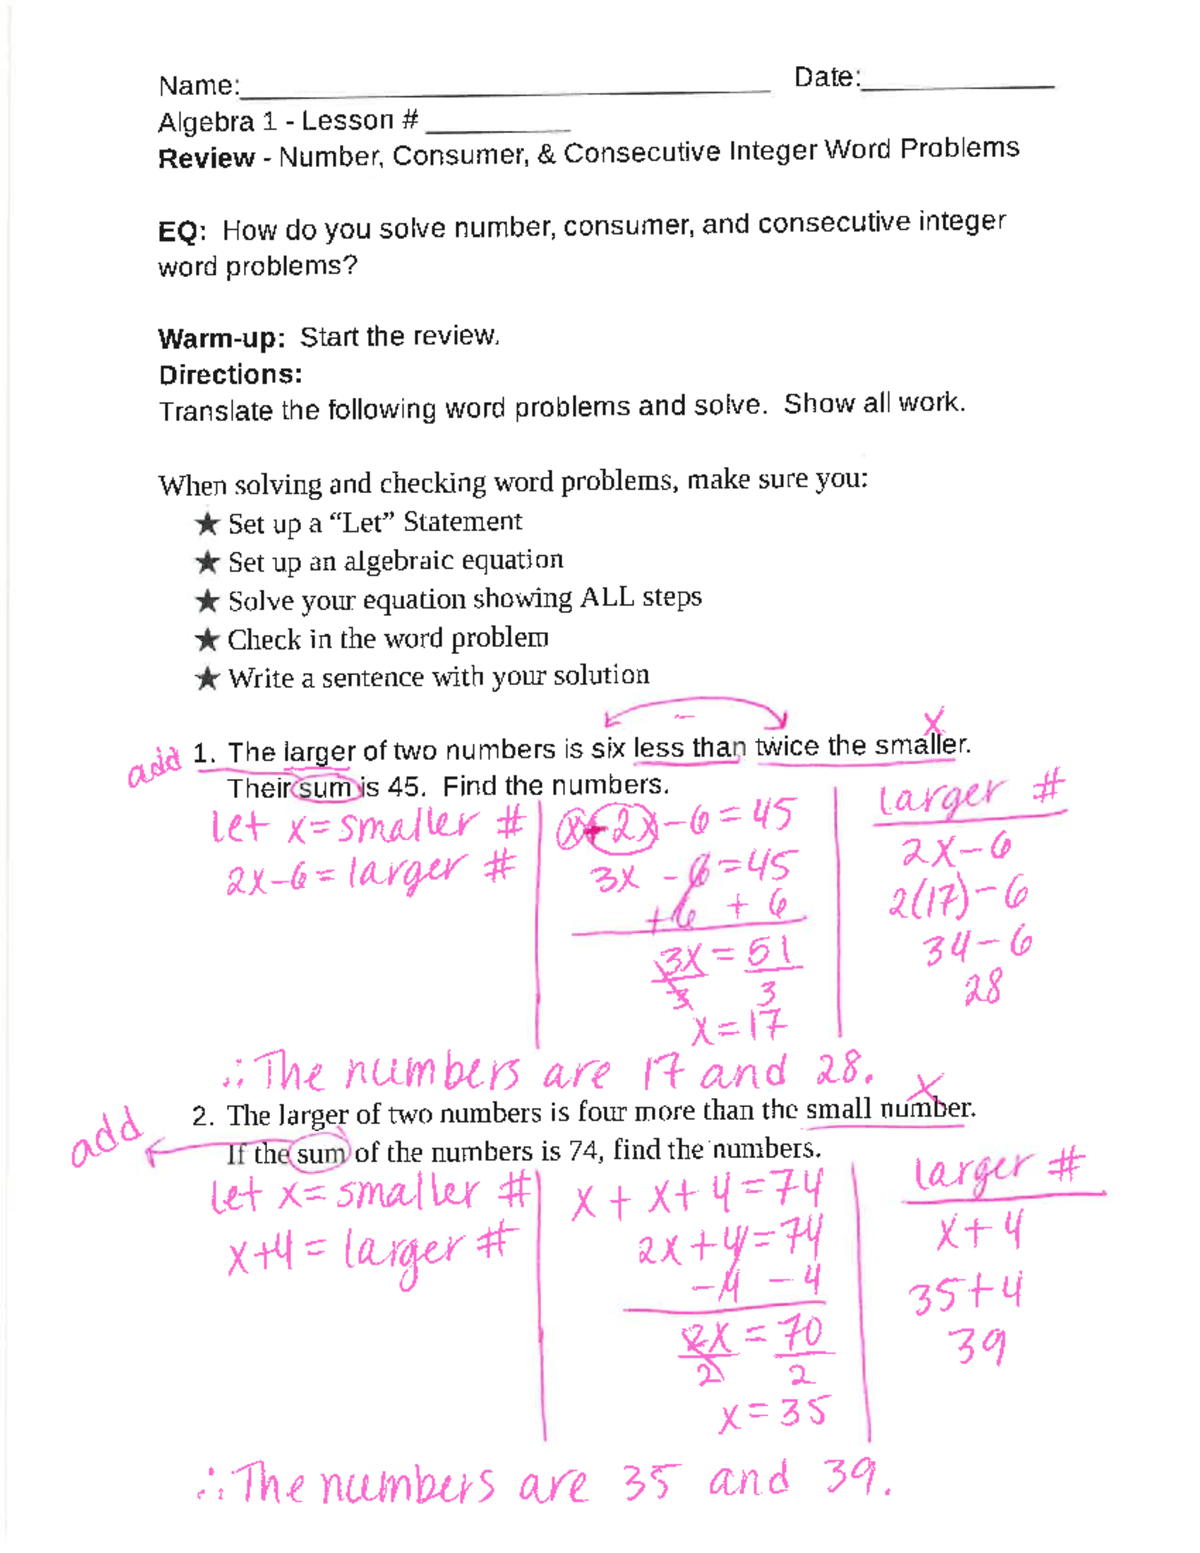 Name:____________________ Date:__________
Algebra 1 - Lesson # ________
Review - Number, Consumer, & Consecutive Integer Word Problems
EQ: How do you solve number, consumer, and consecutive integer
word problems?
Warm-up: Start the review.
Directions:
Translate the following word problems and solve. Show all work.
When solving and checking word problems, make sure you:
★ Set up a “Let” Statement
★ Set up an algebraic equation
★ Solve your equation showing ALL steps
★ Check in the word problem
★ Write a sentence with your solution
− x
add 1. The larger of two numbers is six less than twice the smaller.
Their sum is 45. Find the numbers.
let x = smaller #
2x-6 = larger #
x+2x-6=45
3x -6=45
+6 +6
3x = 51
3 3
x=17
larger #
2x-6
2(17)-6
34-6
28
∴ The numbers are 17 and 28.
x
add 2. The larger of two numbers is four more than the small number.
If the sum of the numbers is 74, find the numbers.
let x= smaller #
x+4 = larger #
x + x+4=74
2x+4=74
-4 -4
2x = 70
2 2
x=35
larger #
x+4
35+4
39
∴ The numbers are 35 and 39.